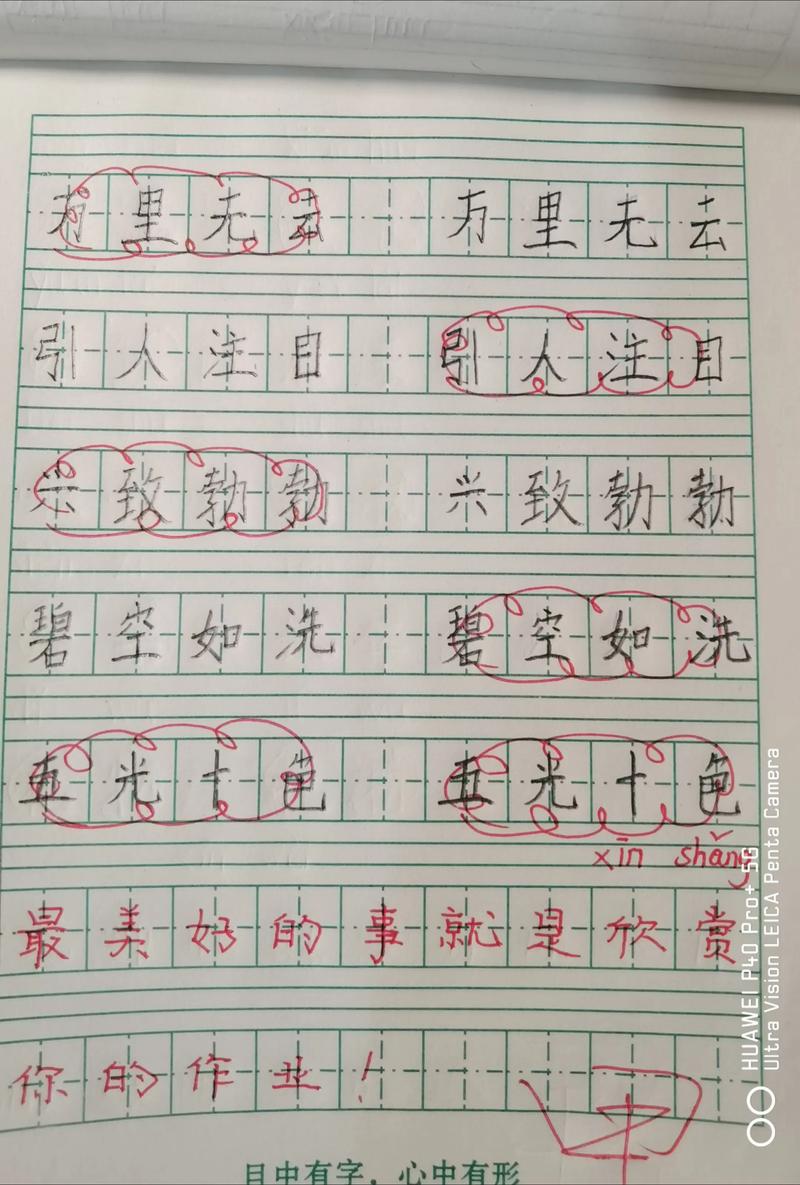 万里无云 万里无云
引人注目 引人注目
兴致勃勃 兴致勃勃
碧空如洗 碧空如洗
五光十色 五光十色
xīn shǎng
最美好的事就是欣赏
你的作业！
目中有字，心中有形
HUAWEI P40 Pro+ 5G
Ultra Vision LEICA Penta Camera